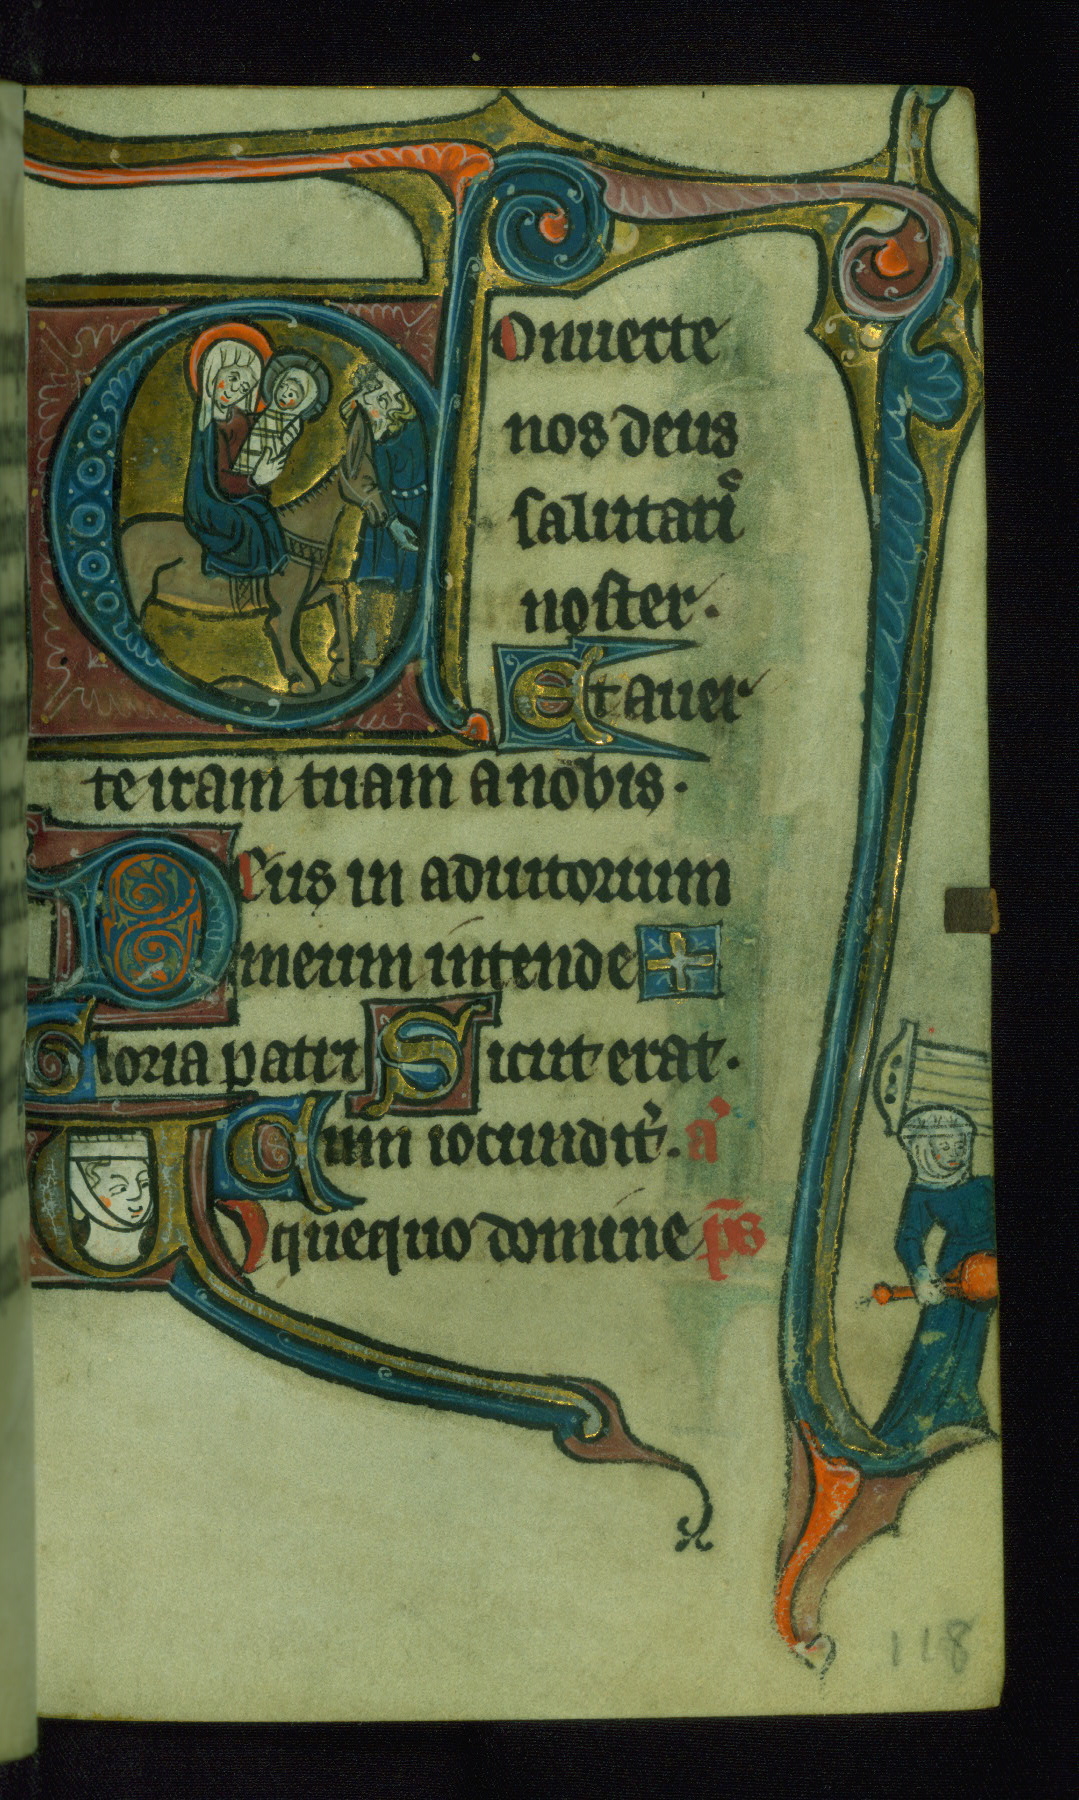 Conuerte
nos deus
salutari͛s
noster.
Et auer
te iram tuam a nobis.
Deus in adiutorium
meum intende
Gloria patri Sicut erat.
Cum iocundit᷑. a͛
Usquequo domine p̄s
118